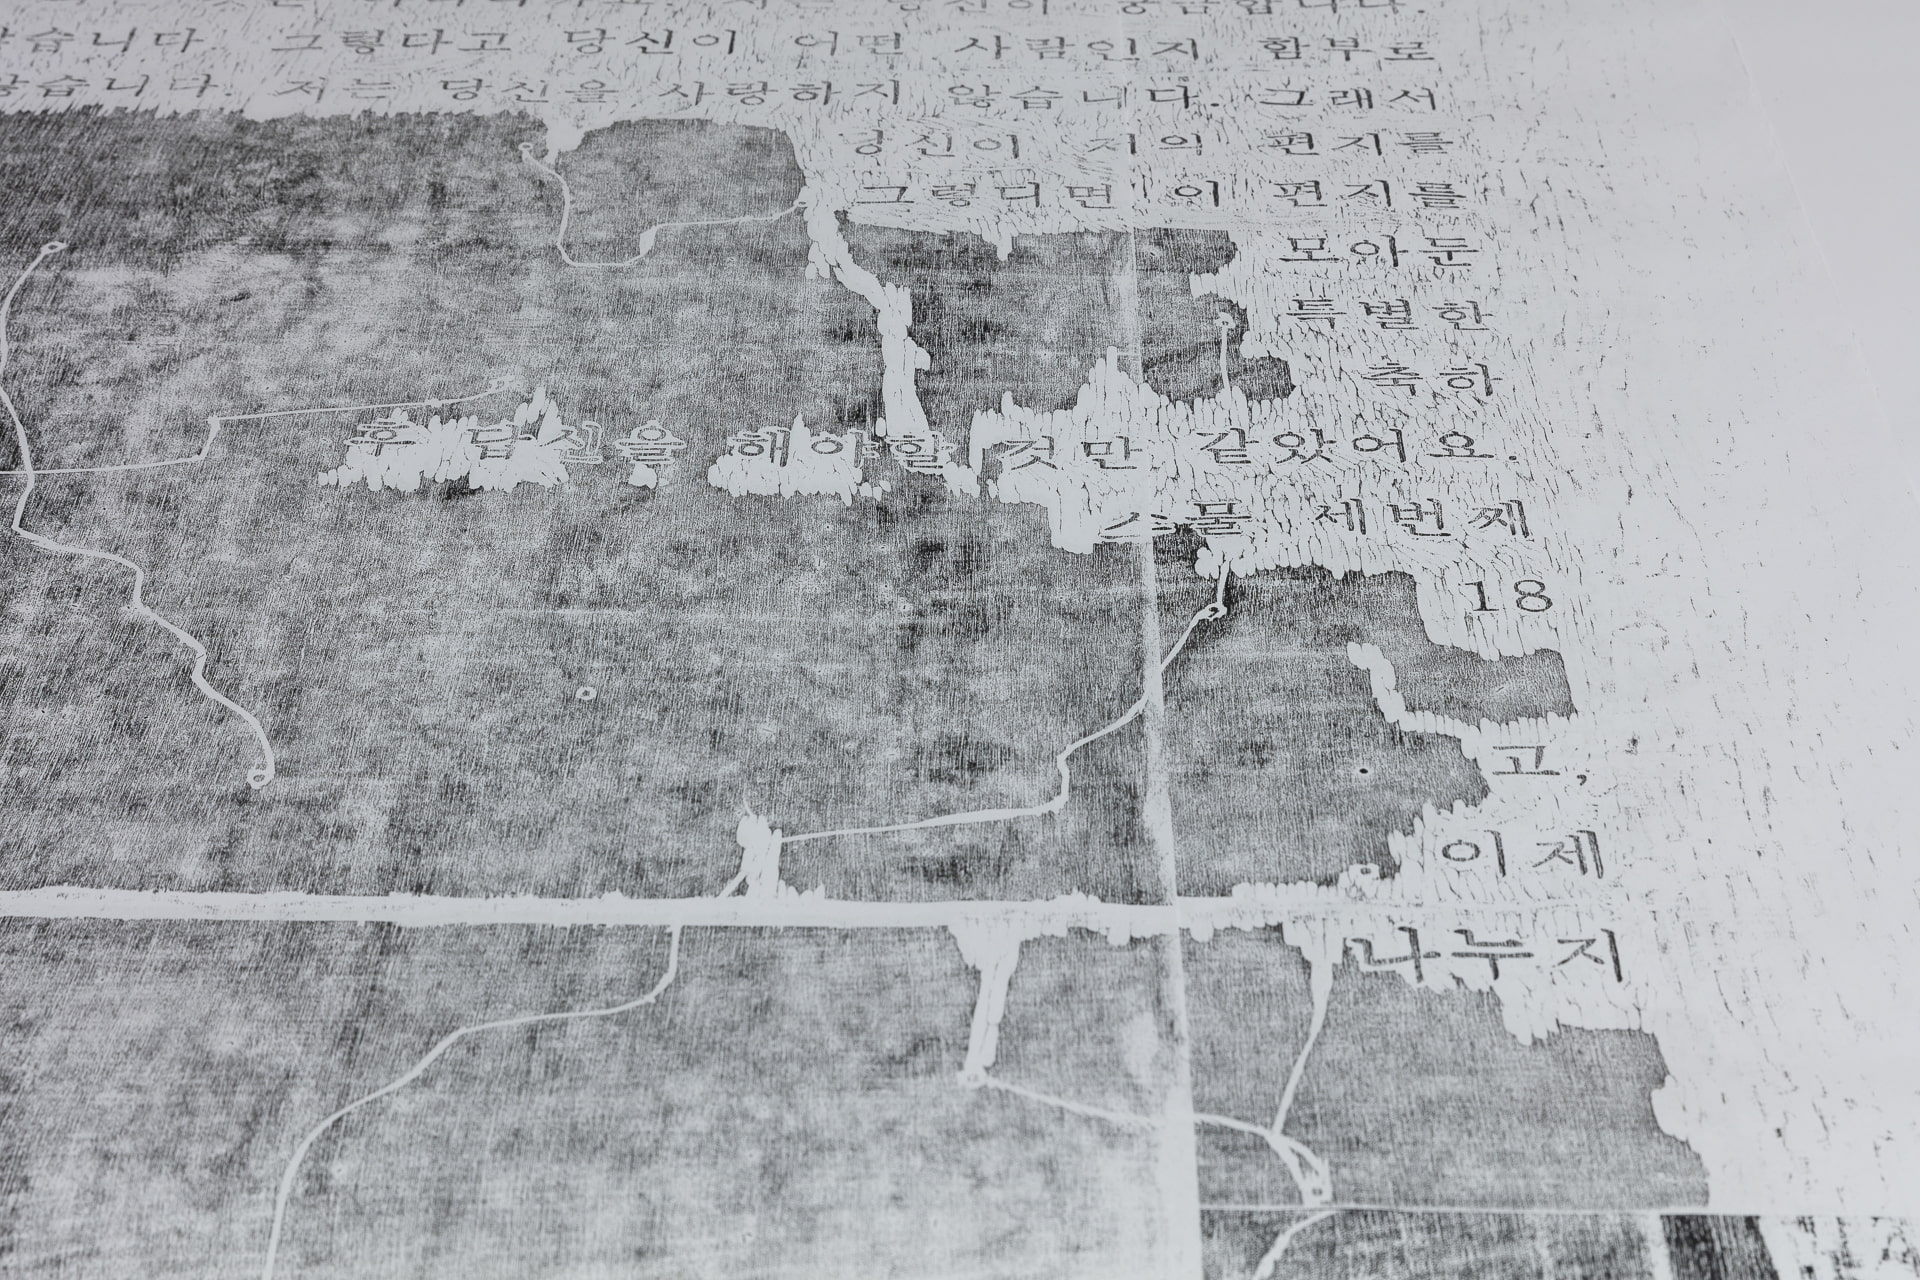 저는 당신이 궁금합니다.
않습니다. 그렇다고 당신이 어떤 사람인지 함부로
않습니다. 저는 당신을 사랑하지 않습니다. 그래서
당신이 저의 편지를
그렇다면 이 편지를
모아둔
특별한
축하
후 답신을 해야할 것만 같았어요.
스물 세번째
18
고,
이제
나누지